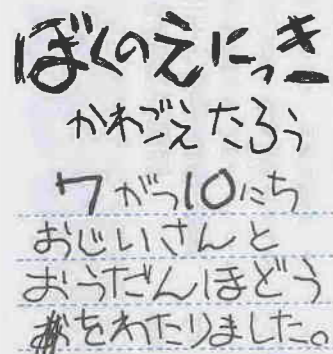 ぼくのえにっき
かわごえたろう
7がつ10にち
おじいさんと
おうだんほどう
をわたりました。